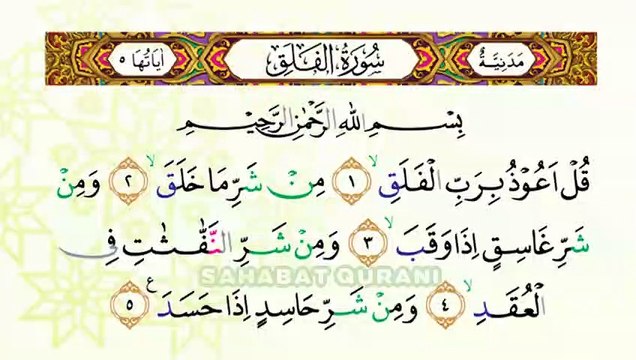 مَدَنِيَّةٌ سُورَةُ الْفَلَقِ اٰيَاتُهَا ٥
بِسْمِ اللهِ الرَّحْمٰنِ الرَّحِيْمِ
قُلْ اَعُوْذُ بِرَبِّ الْفَلَقِۙ ١ مِنْ شَرِّ مَا خَلَقَۙ ٢ وَمِنْ
شَرِّ غَاسِقٍ اِذَا وَقَبَۙ ٣ وَمِنْ شَرِّ النَّفّٰثٰتِ فِى
الْعُقَدِۙ ٤ وَمِنْ شَرِّ حَاسِدٍ اِذَا حَسَدَ ࣖ ٥
SAHABAT QURANI